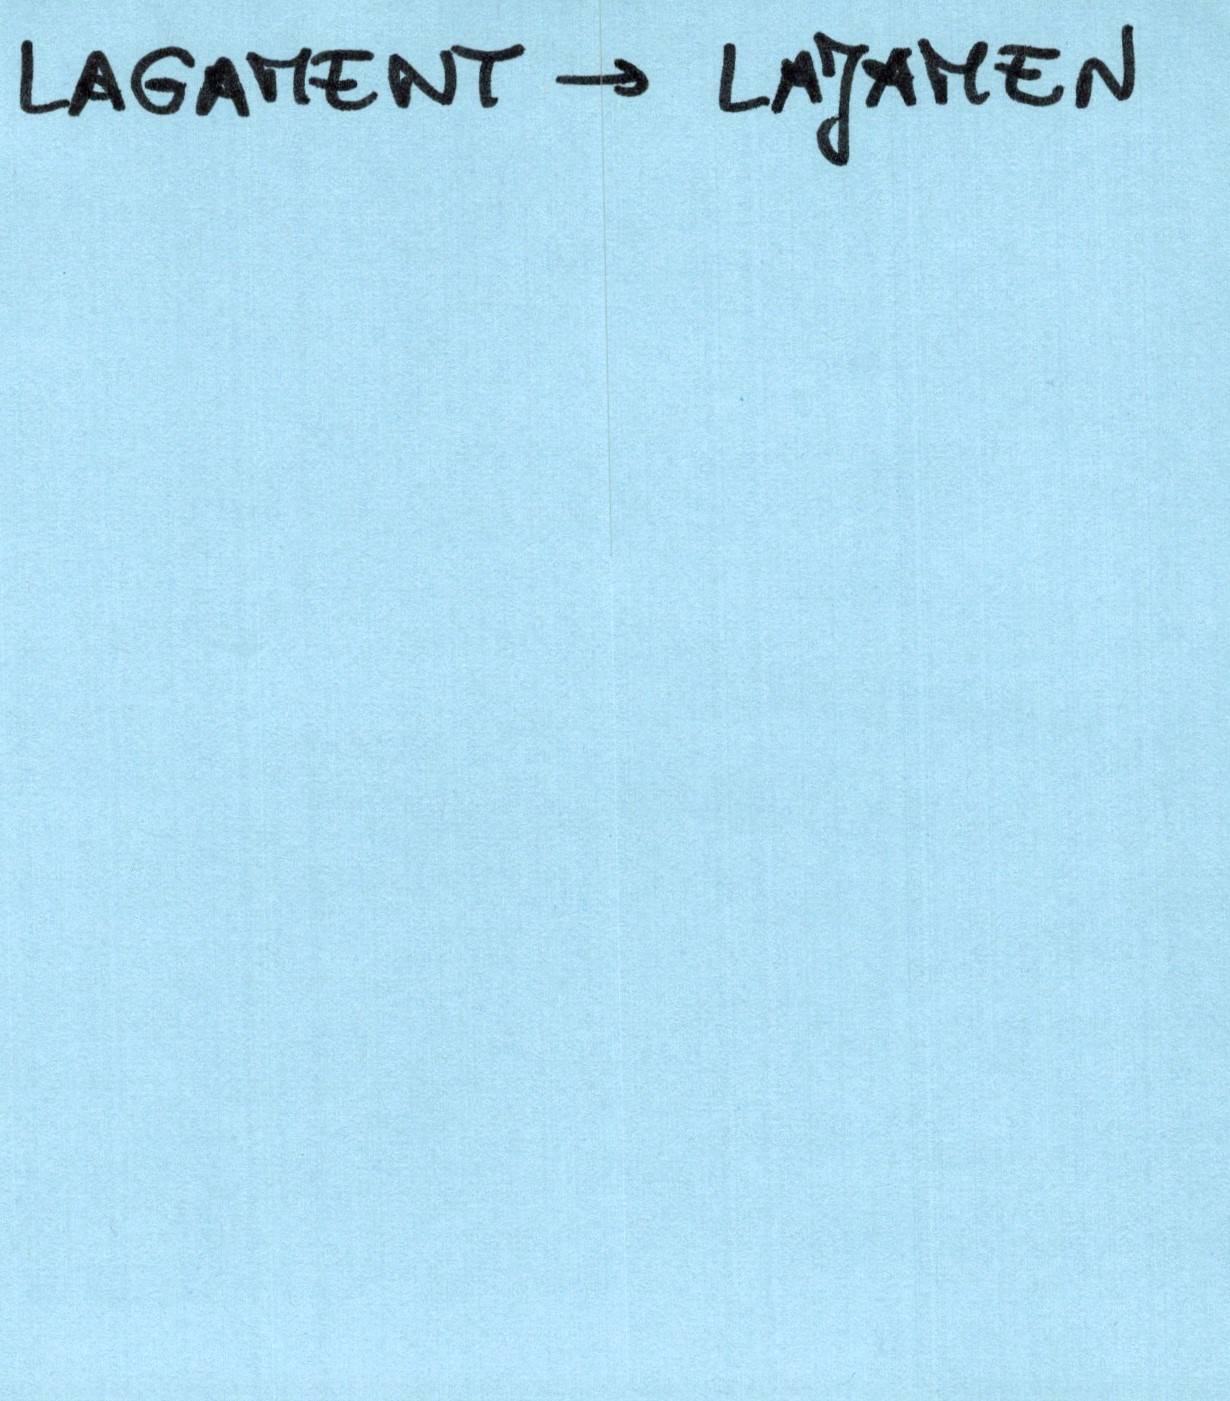 LAGAMENT → LAJAMEN